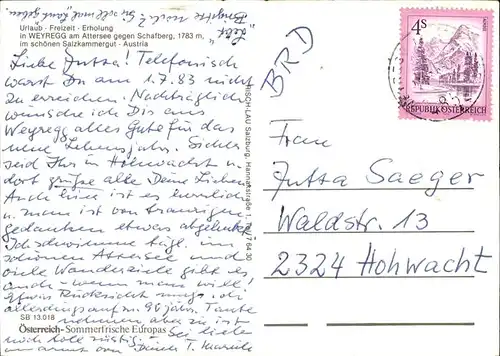 Urlaub - Freizeit - Erholung
in WEYREGG am Attersee gegen Schafberg, 1783 m,
im schönen Salzkammergut - Austria
Liebe Jutta! Telefonisch
warst Du am 1.7.83 nicht
zu erreichen. Nachträglich
wünsche ich Dir aus
Weyregg alles Gute für das
neue Lebensjahr. Sicher
seid Ihr in Hohwacht u.
dort grüße alle Deine Lieben
Auch hier ist es herrlich
u. man ist von traurigen
Gedanken etwas abgelenkt
Ich schwimme tägl. im
schönen Attersee und
viele Wanderziele gibt es
auch - wenn man will!
Etwas Rücksicht muß ich
allerdings auf m. 96 jähr. Tante
nehmen aber sie ist
noch toll rüstig. Sei lieb
SB 13.018
Österreich - Sommerfrische Europas
RISCH-LAU Salzburg, Hannakstraße 1, Tel. 7 64 30
BRD
4S
REPUBLIK ÖSTERREICH
Frau
Jutta Saeger
Waldstr. 13
2324 Hohwacht